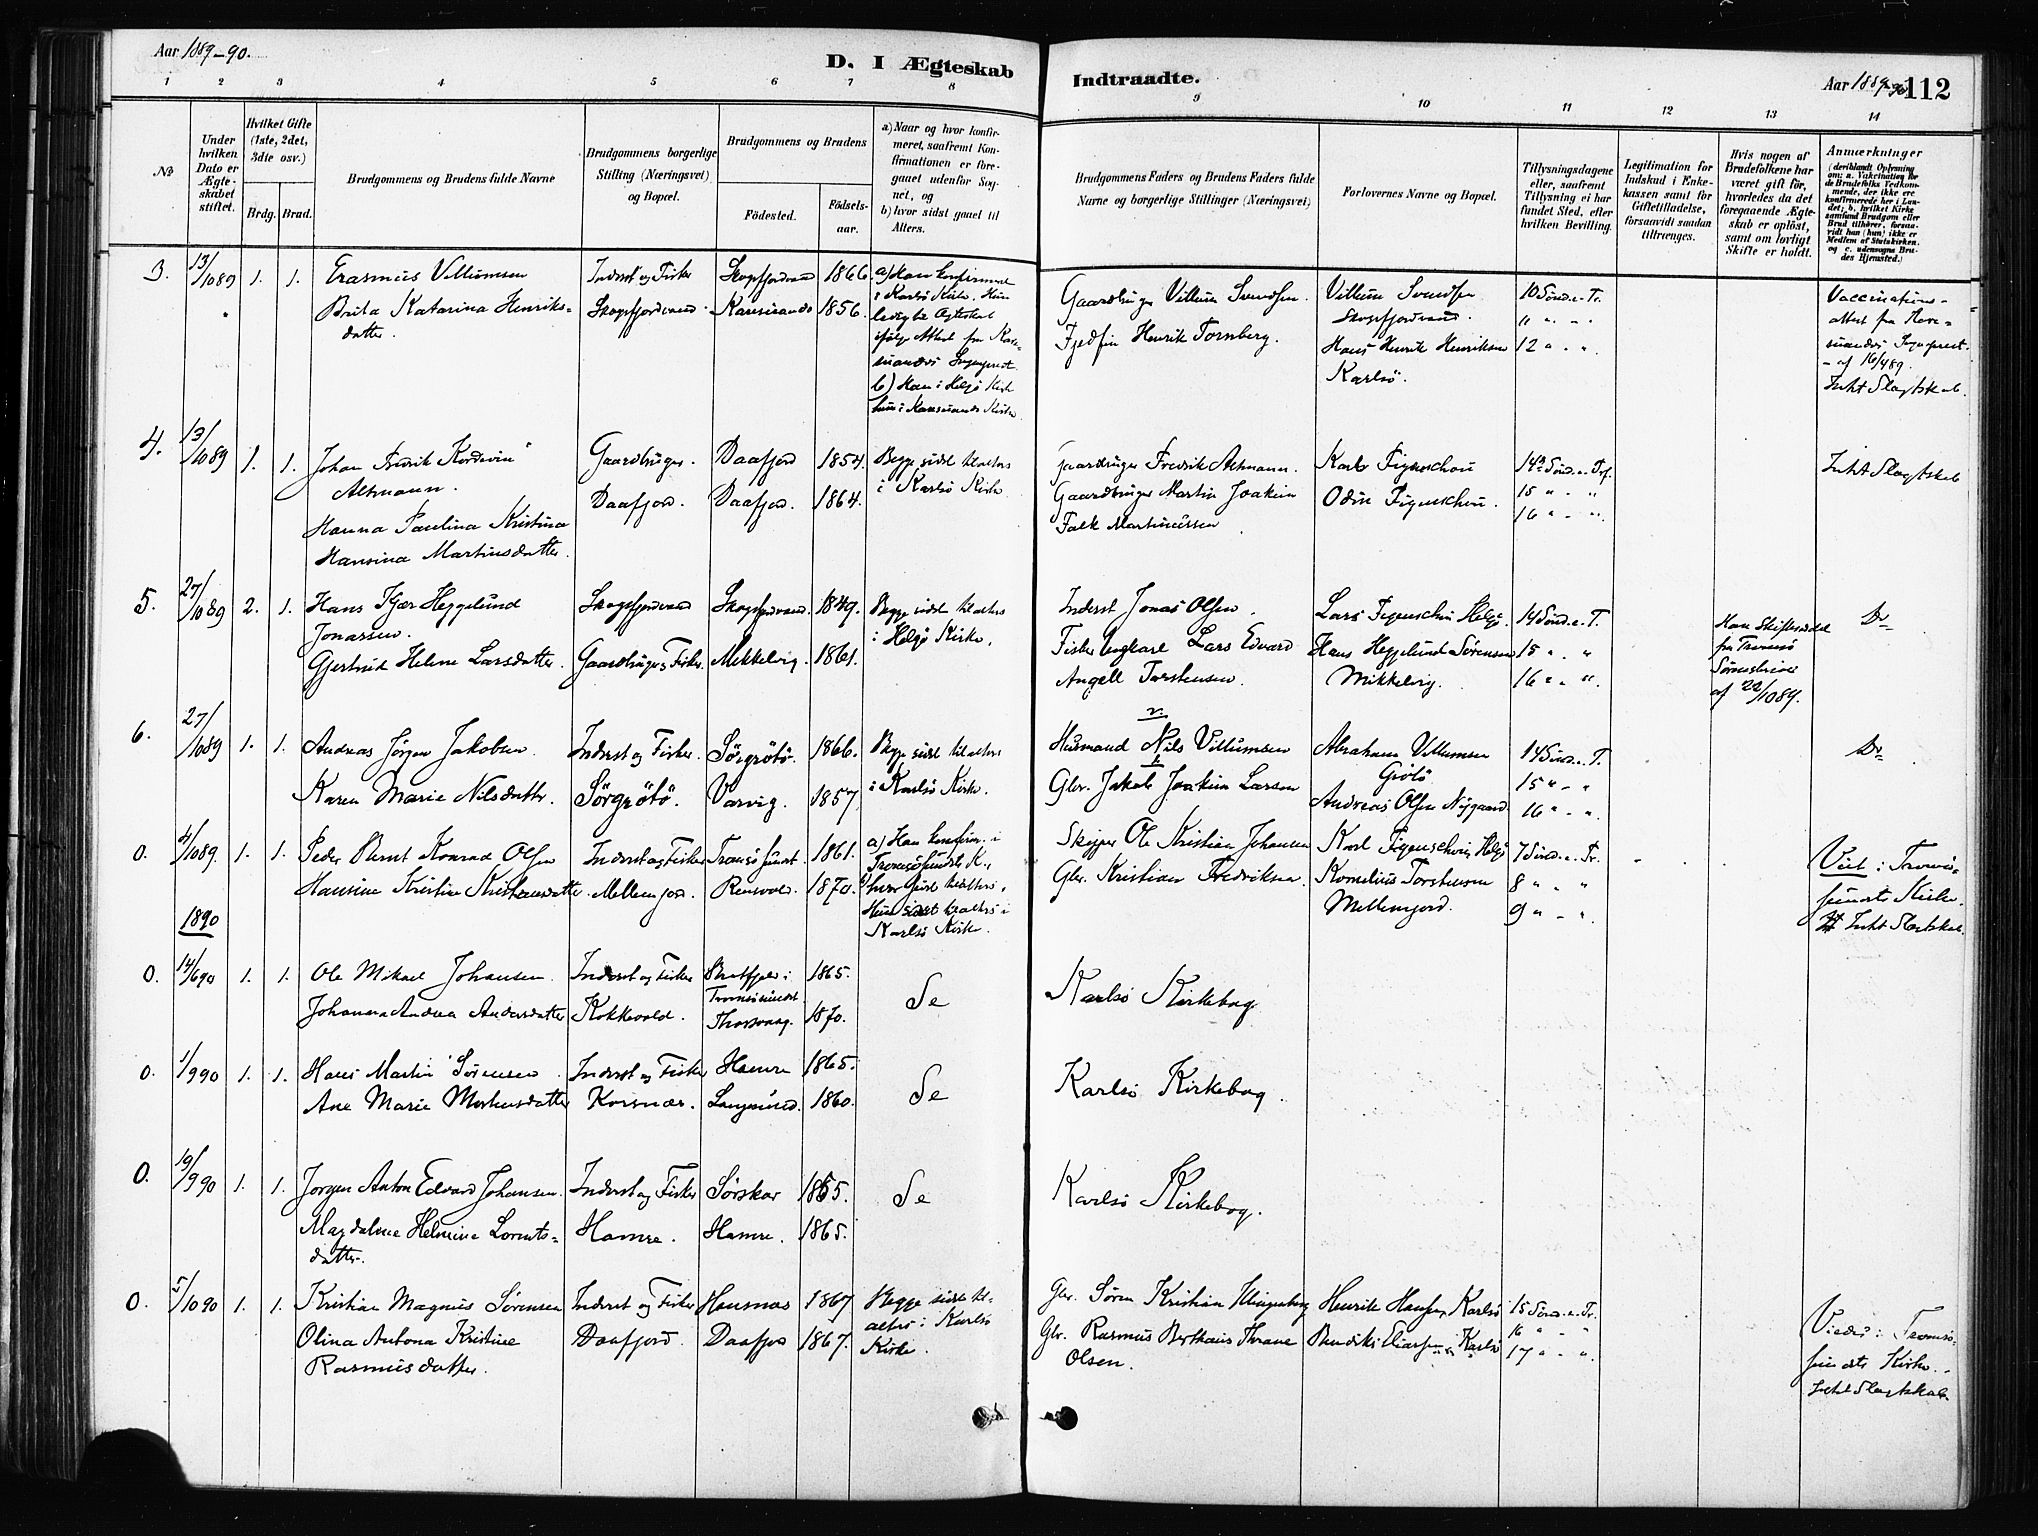 Aar 1889-90.
D. I Ægteskab
Indtraadte.
Aar 1889-90
112
1 2 3 4 5 6 7 8 9 10 11 12 13 14
No
Under hvilken Dato er Ægteskabet stiftet.
Hvilket Gifte (1ste, 2det, 3die osv.)
Brdg. Brud.
Brudgommens og Brudens fulde Navne
Brudgommens borgerlige Stilling (Næringsvei) og Bopæl.
Brudgommens og Brudens
Fødested.
Fødselsaar.
a) Naar og hvor konfirmeret, saafremt Konfirmationen er foregaaet udenfor Sognet, og
b) hvor sidst gaaet til Alters.
Brudgommens Faders og Brudens Faders fulde Navne og borgerlige Stillinger (Næringsvei)
Forlovernes Navne og Bopæl.
Tillysningsdagene eller, saafremt Tillysning ei har fundet Sted, efter hvilken Bevilling.
Legitimation for Indskud i Enkekassen samt for Giftetilladelse, forsaavidt saadan tiltrænges.
Hvis nogen af Brudefolkene har været gift før, hvorledes da det foregaaende Ægteskab er opløst, samt om lovligt Skifte er holdt.
Anmærkninger
(deriblandt Oplysning om: a. Vakcination for de Brudefolks Vedkommende, der ikke ere konfirmerede her i Landet; b. hvilket Kirkesamfund Brudgom eller Brud tilhører, forsaavidt han (hun) ikke er Medlem af Statskirken, og c. udensogns Brudes Hjemsted.)
3. 13/10 89 1. 1. Erasmus Villumsen Inderst og Fisker Skogsfjordvand 1866. a) Han konfirmeret
Brita Katarina Henriksdatter. Skogsfjordvand. Karesuando 1856. i Karlsö Kirke. Hun
ledig til Ægteskab
ifølge Attest fra Karesuandos Sogneprest
b) Han i Helgö Kirke
hun i Karesuando Kirke.
Gaardbruger Villum Svendsen. Villum Svendsen 10 Sönd. e. Tr. Vaccinations-
Skogsfjordvand. 11 " - "
Fjedfin Henrik Tornberg. Hans Henrik Henriksen 12 " - "
Karlsö.
attest fra Karesuandos Sogneprest
af 16/4 89.
Intet Slagtskab.
4. 13/10 89 1. 1. Johan Fredrik Kordevin Gaardbruger. Daafjord 1854. Begge sidst til alters
Altmann. Daafjord. Daafjord. 1864. i Karlsö Kirke
Hanna Paulina Kristina
Hansina Martinsdatter.
Gaardbruger Fredrik Altmann. Karl Figenschou 14de Sönd. e. Tr. Intet Slagtskab
Gaardbruger Martin Joakim Odin Figenschou. 15 " - "
Falk Martinussen 16 " - "
5. 27/10 89 2. 1. Hans Kjær Heggelund Skogsfjordvand Skogsfjordvand. 1849. Begge sidst til alters
Jonassen. i Helgö Kirke.
Gjertrud Helene Larsdatter. Gaardbruger, Fisker. Mikkelvig. 1861.
Inderst Jonas Olsen. Lars Figenschou Helgö. 14 Sönd. e. T. Do
Fisker Lars Edvard Hans Heggelund Sörensen 15 " - "
Angell Torstensen. Mikkelvig. 16 " - "
Han Skifteseddel
fra Tromsö
Sorenskriver
af 22/10 89.
6. 27/10 89 1. 1. Andreas Jörgen Jakobsen. Inderst og Fisker. Sörgrötö. 1866. Begge sidst til alters
Karen Marie Nilsdatter. Sörgrötö. Varvig. 1857. i Karlsö Kirke.
Husmand Nils Villumsen Abraham Villumsen 14 Sönd. e. T. Do
Grötö 15 " - "
Gbr. Jakob Joakim Larsen Andreas Olsen Nygaard 16 " - "
0. 4/10 89. 1. 1. Peder Bernt Konrad Olsen Inderst og Fisker Tromsösundet. 1861. a) Han konfirm. i
Hansine Kristine Kristiansdatter. Mellemjord. Rensvold. 1870. Tromsösundets K.,
b) hvor sidst til alters.
Hun sidst til alters i
Karlsö Kirke.
Skipper Ole Kristian Johansen Karl Figenschou Helgö 7 Sönd. e. Tr. Viet i Tromsösundets Kirke.
Gbr. Kristian Fredriksen Kornelius Torstensen 8 " - "
Mellemjord. 9 " - "
Intet Slagtskab.
1890
0. 14/6 90 1. 1. Ole Mikael Johansen Inderst og Fisker i Tromsösundet 1865.
Johanna Andrea Andersdatter Kokkevold. Thorsvaag. 1870. Se Karlsö Kirkebog.
0. 1/9 90 1. 1. Hans Martin Sörensen Inderst og Fisker Hamre 1865.
Ane Marie Mortensdatter Korsnæs. Langsund. 1860. Se Karlsö Kirkebog.
0. 19/9 90 1. 1. Jörgen Anton Edvard Johansen Inderst og Fisker Sörskar 1865.
Magdalene Helmine Lorentsdatter. Hamre. Hamre. 1865. Se Karlsö Kirkebog.
0. 5/10 90 1. 1. Kristian Magnus Sörensen Inderst og Fisker Hansnæs 1867 Begge sidst til
Olina Antona Kristine Daafjord. Daafjord 1867. alters i Karlsö
Rasmusdatter. Kirke.
Gbr. Sören Kristian Klingenberg Henrik Hansen, Karlsö 15 Sönd. e. Tr.
Gbr. Rasmus Berthæus Thrane Bendiks Eliassen, Karlsö 16 " - "
Olsen. 17 " - "
Viede i Tromsösundets Kirke.
Intet Slagtskab